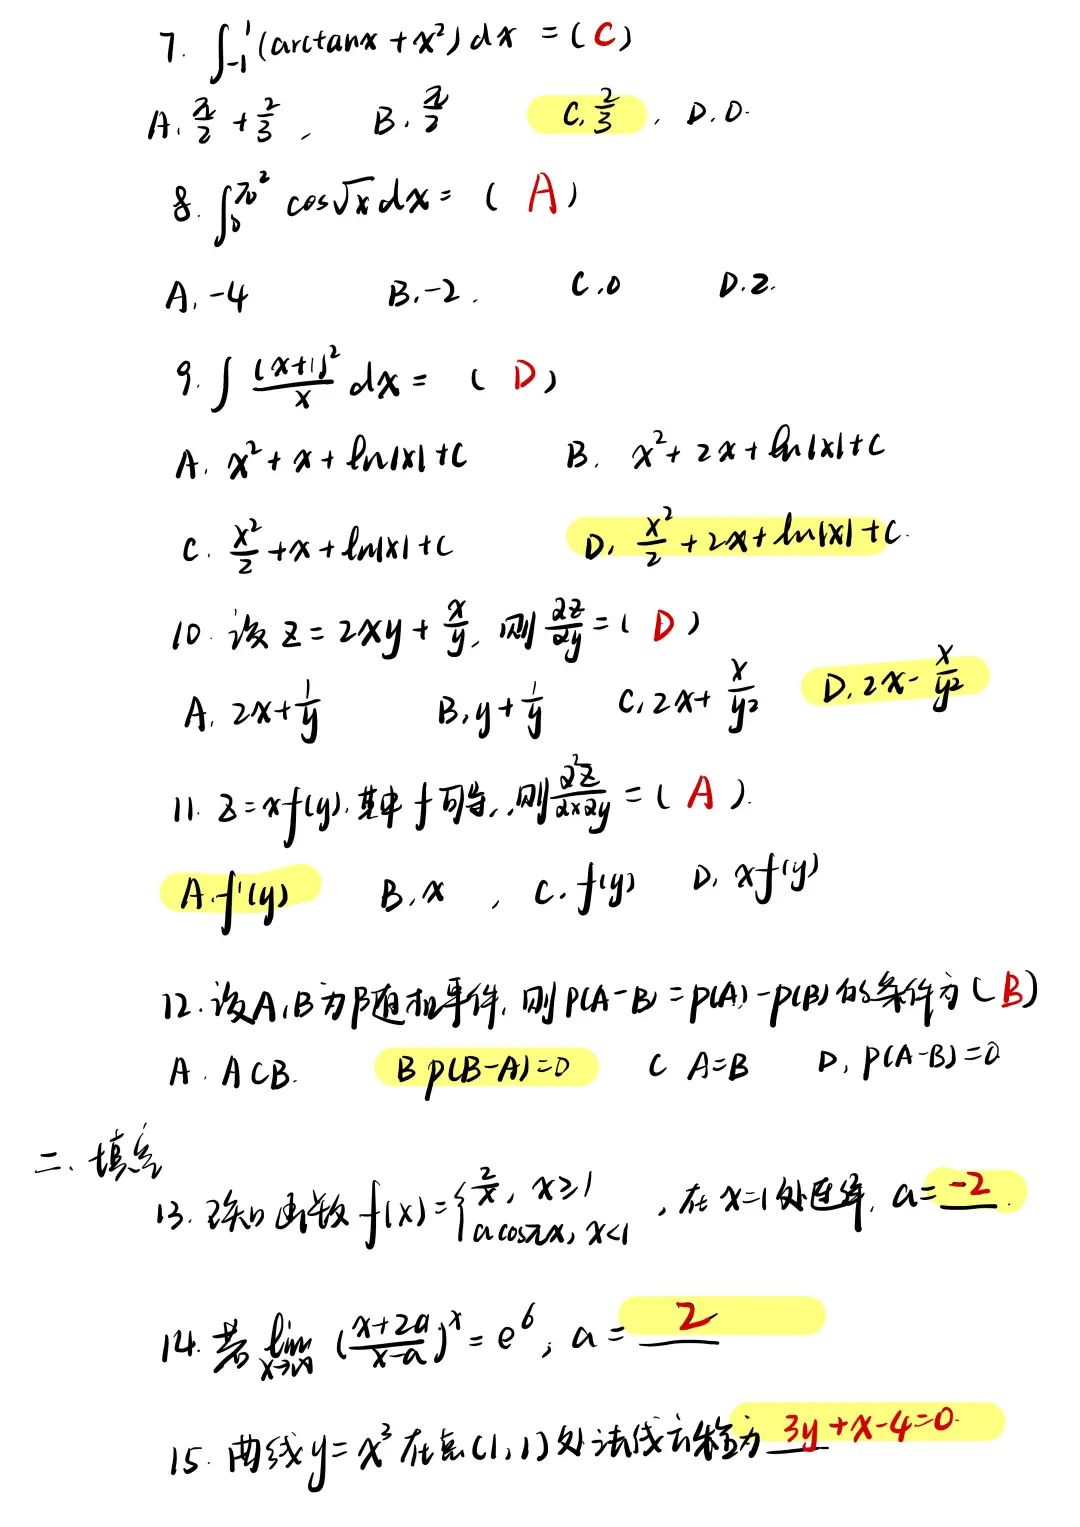 7. ∫₋₁¹(arctanx+x²)dx =(C)
A. π/2+2/3, B. π/2 C. 2/3, D. 0.
8. ∫₀^π² cos√x dx= (A)
A. -4 B. -2. C. 0 D. 2.
9. ∫ (x+1)²/x dx= (D)
A. x²+x+ln|x|+C B. x²+2x+ln|x|+C
C. x²/2+x+ln|x|+C D. x²/2+2x+ln|x|+C.
10. 设 z=2xy+x/y, 则 ∂z/∂y=(D)
A. 2x+1/y B. y+1/y C. 2x+x/y² D. 2x-x/y²
11. z=xf(y). 其中 f 可导, 则 ∂²z/∂x∂y=(A).
A. f'(y) B. x, C. f(y) D. xf(y)
12. 设A,B为随机事件, 则 P(A-B)=P(A)-P(B)的条件为(B)
A. A⊂B. B P(B-A)=0 C A=B D. P(A-B)=0
二、填空
13. 已知函数 f(x)={2/x, x≥1
acosπx, x<1, 在 x=1处连续, a=-2.
14. 若 lim x→∞ ((x+2a)/(x-a))^x=e⁶, a=2
15. 曲线y=x³在点(1,1)处法线方程为 3y+x-4=0.